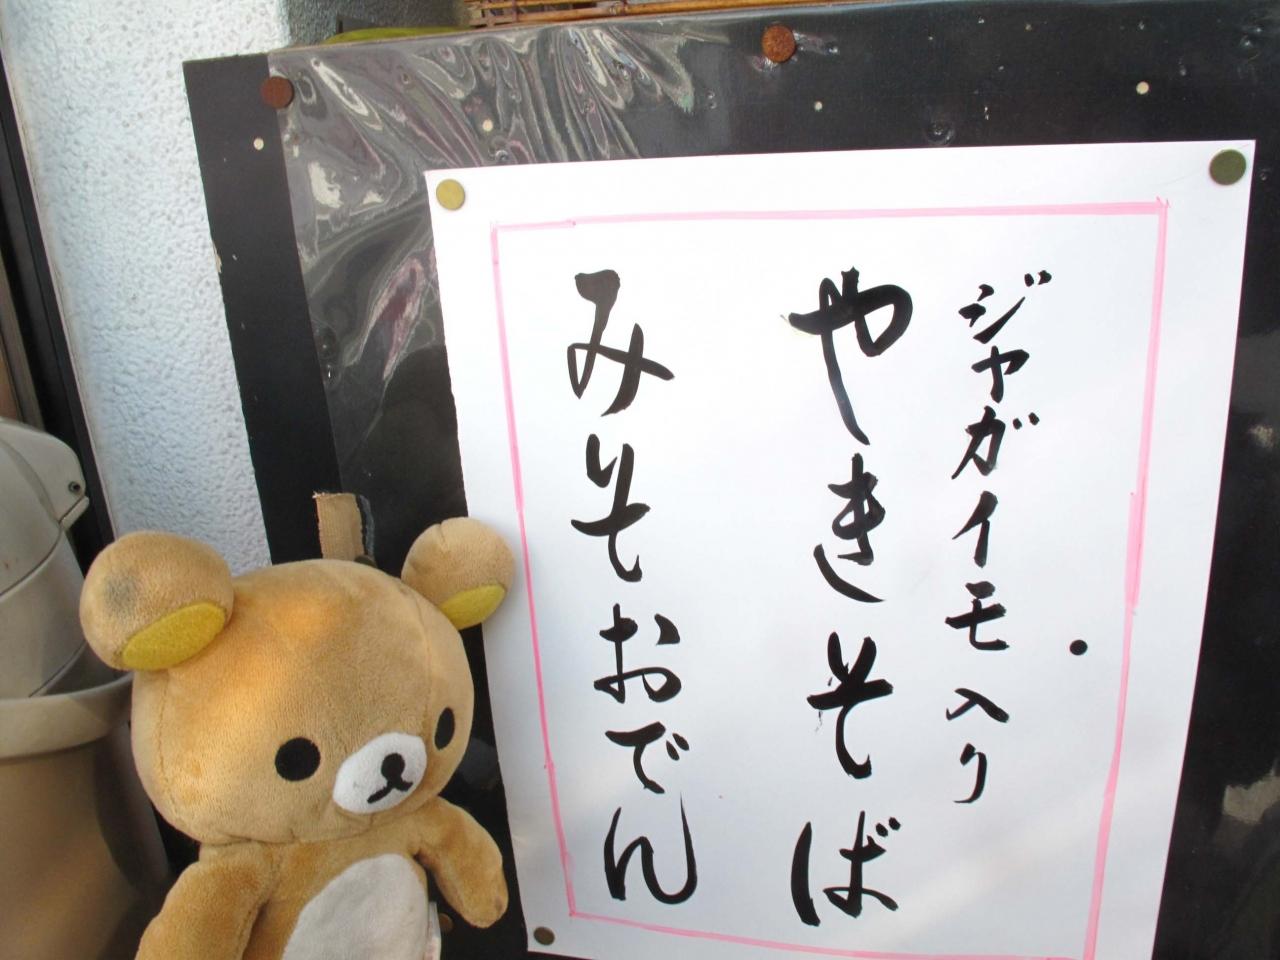 ジャガイモ入り
やきそば
みそおでん